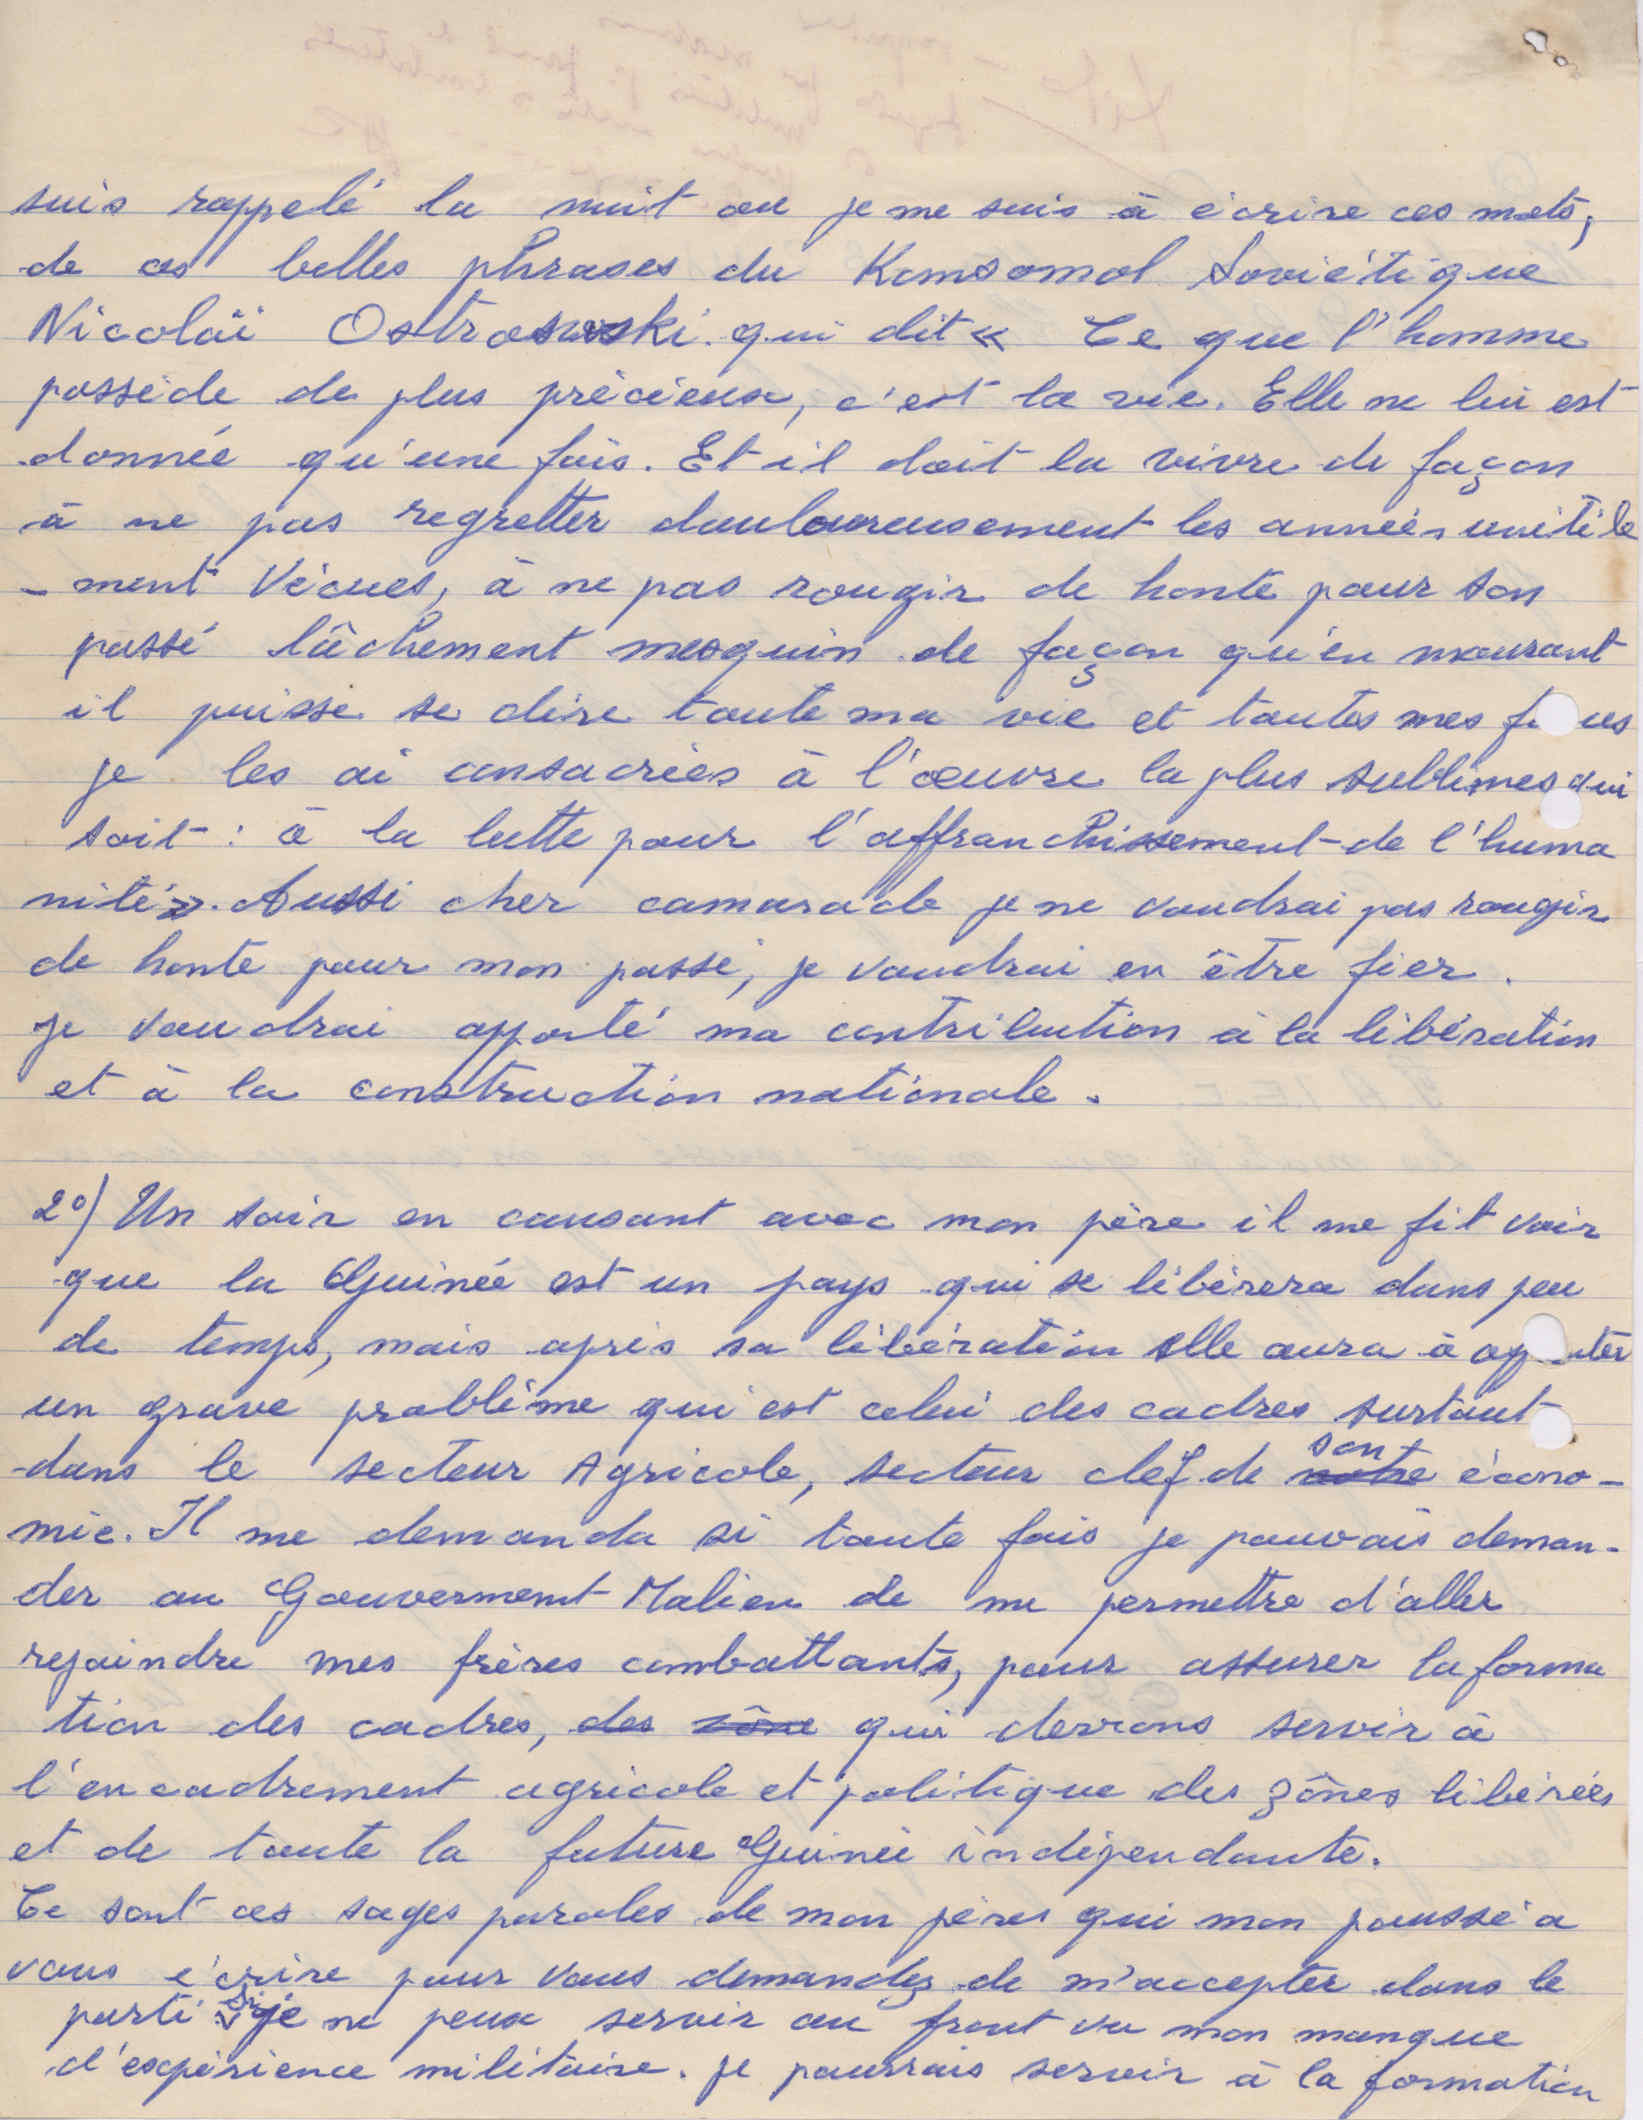 suis rappelé la nuit ou je me suis à écrire ces mots,
de ces belles phrases du Komsomol Soviétique
Nicolaï Ostrowski qui dit « Ce que l'homme
possède de plus précieux, c'est la vie. Elle ne lui est
donnée qu'une fois. Et il doit la vivre de façon
à ne pas regretter douloureusement les années
- ment vécues, à ne pas rougir de honte pour son
passé lâchement mesquin de façon qu'en mourant
il puisse se dire toute ma vie et toutes mes
je les ai consacrées à l'œuvre la plus sublimes qui
soit : à la lutte pour l'affranchissement de l'huma
nité ». Aussi cher camarade je ne voudrai pas rougir
de honte pour mon passé, je voudrai en être fier.
je voudrai apporté ma contribution à la libération
et à la construction nationale.
2°/ Un soir en causant avec mon père il me fit voir
que la Guinée est un pays qui se libérera dans peu
de temps, mais après sa libération elle aura à
un grave problème qui est celui des cadres surtout
dans le secteur Agricole, secteur clef de notre son écono-
mie. Il me demanda si toute fois je pouvais deman-
der au Gouvernemt Malien de me permettre d'aller
rejoindre mes frères combattants, pour assurer la forma
tion des cadres, des zône qui devrons servir à
l'encadrement agricole et politique des zônes libérées
et de toute la future Guinée indépendante.
Ce sont ces sages paroles de mon père qui mon poussé a
vous écrire pour vous demandez de m'accepter dans le
parti si je ne peux servir au front vu mon manque
d'expérience militaire. je pourrais servir à la formation